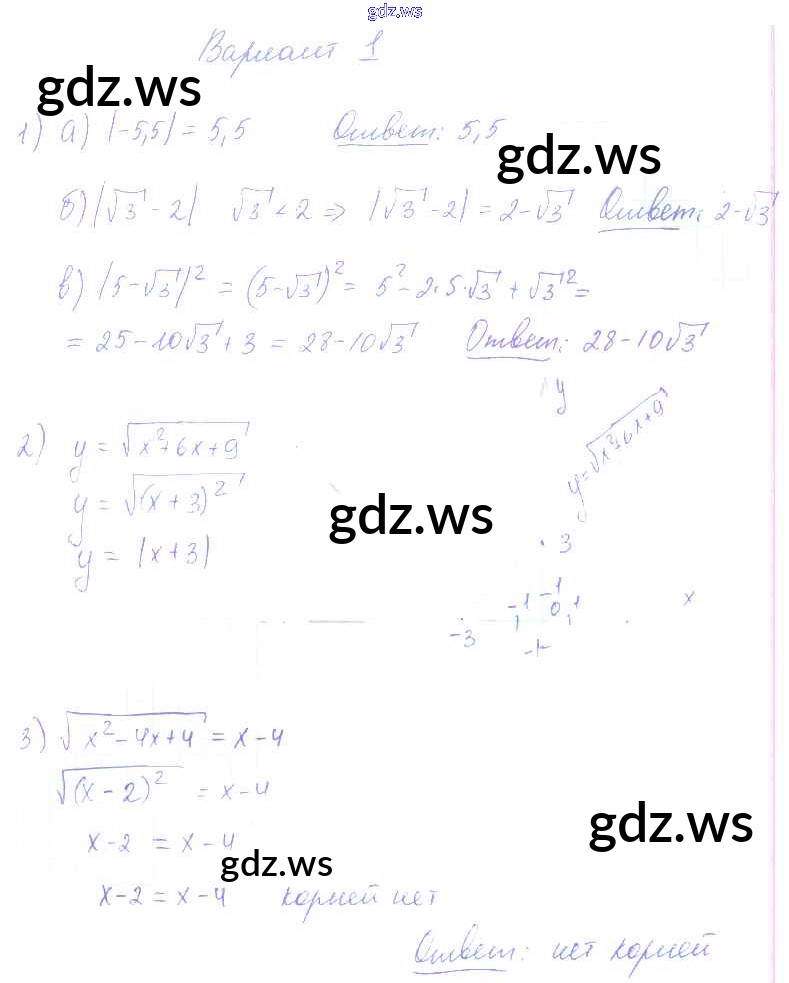 gdz.ws
Вариант 1
gdz.ws
1) а) |-5,5| = 5,5 Ответ: 5,5
gdz.ws
б) |√3 - 2| √3 < 2 ⇒ |√3 - 2| = 2 - √3 Ответ: 2 - √3
в) |5 - √3|² = (5 - √3)² = 5² - 2·5·√3 + √3² =
= 25 - 10√3 + 3 = 28 - 10√3 Ответ: 28 - 10√3
y
2) y = √(x² + 6x + 9)
y = √(x² + 6x + 9)
y = √((x + 3)²)
gdz.ws
y = |x + 3|
3
-1 -1
0 1 x
-3
3) √(x² - 4x + 4) = x - 4
√((x - 2)²) = x - 4
gdz.ws
x - 2 = x - 4
gdz.ws
x - 2 = x - 4 корней нет
Ответ: нет корней